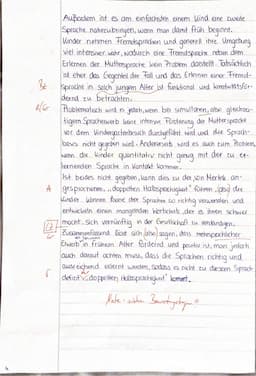 Außerdem ist es am einfachsten einem Kind eine zweite
Sprache nahezubringen, wenn man damit früh beginnt.
Kinder nehmen Fremdsprachen und generell ihre Umgebung
viel intensiver wahr, wodurch eine Fremdsprache neben dem
Erlernen der Muttersprache kein Problem darstellt. Tatsächlich
ist eher das Gegenteil der Fall und das Erlernen einer Fremd-
sprache in solch jungem Alter ist funktional und
zu betrachten.
Problematisch wird es jedoch, wenn bei simultanem, also gleichzei-
tigem Spracherwerb keine intensive Förderung der Muttersprache
vor dem Kindergartenbesuch durchgeführt wird und die Sprach-
basis nicht gegeben wird. Andererseits wird es auch zum Problem,
wenn die Kinder quantitativ nicht genug mit der zu er-
lernenden Sprache in Kontakt kommen.
Ist beides nicht gegeben, kann dies zu der von
gesprochenen "doppelten Halbsprachigkeit" führen, also die
Kinder können keine der Sprachen so richtig verwenden und
entwickeln einen mangelnden Wortschatz, der es ihnen schwer
macht sich vernünftig in der Gesellschaft zu verständigen.
Zusammenfassend lässt sich also sagen, dass mehrsprachlicher
Erwerb im frühen Alter fördernd und positiv ist, man jedoch
auch darauf achten muss, dass die Sprachen richtig und
ausreichend erlernt werden, sodass es nicht zu diesem Sprach-
defizit "doppelten Halbsprachigkeit" kommt.
Bz
A
R
Note: siehe Bewertungsbogen